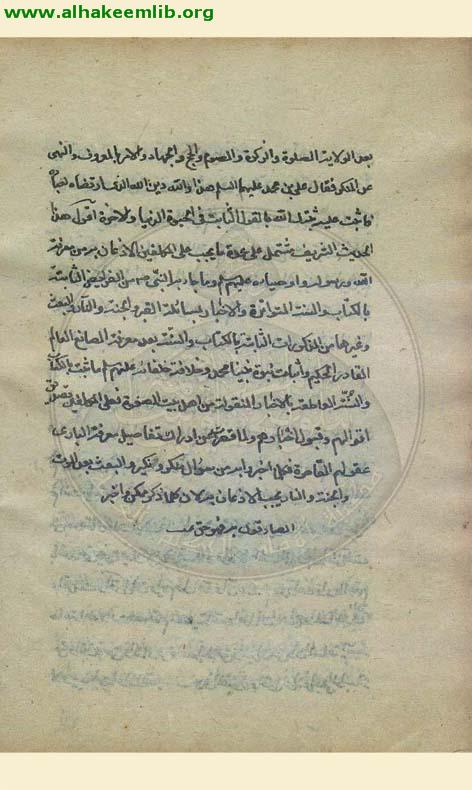 www.alhakeemlib.org
بعد الولاية الصلوة والزكوة والصوم والحج والجهاد والامر بالمعروف والنهى
عن المنكر فقال على بن محمد عليهم السلم هذا والله دين الله الذى ارتضاه لعباده
فاثبت عليه ثبتك الله بالقول الثابت فى الحيوة الدنيا والاخرة اقول هذا
الحديث الشريف مشتمل على عدة ما يجب على المكلفين الاذعان به من معرفة
الله ورسوله واوصيائه عليهم السلم وما جاء به النبى من الفرائض الثابتة
بالكتاب والسنة المتواترة والاخبار بمسائلة القبر والجنة والنار والبعث
وغيرها من المذكورات الثابتة بالكتاب والسنة بعد معرفة الصانع العالم
القادر الحكيم واثبات نبوة نبينا محمد وخلافة خلفائه عليهم السلم ما ثبت بالكتاب
والسنة القاطعة بالاخبار المنقولة من اهل بيت العصمة فعلى المؤالفين تصديق
اقوالهم وقبول اخبارهم ولما قصرت عن ادراك تفاصيل معرفة البارى
عقولهم القاصرة فكل اخبروا به من سؤال منكر ونكير والبعث بعد الموت
والجنة والنار يجب الاذعان به لان كلما ذكر ممكن اخبر
الصادق به فهو حق